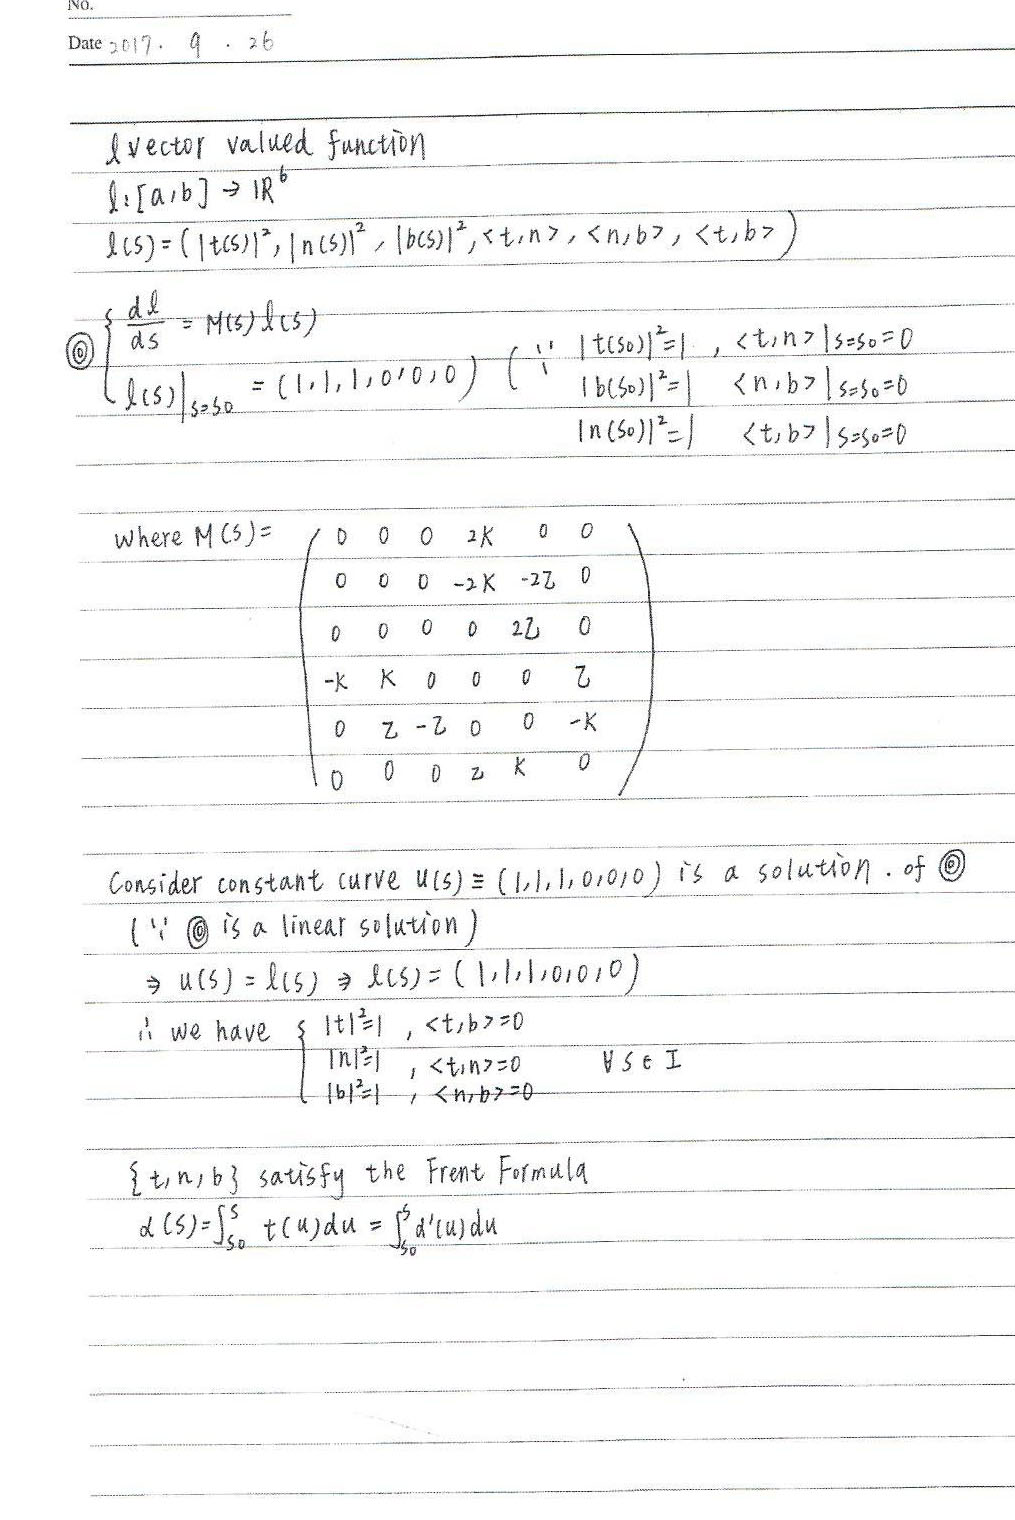 No.
Date 2017. 9 . 26
l vector valued function
l: [a,b] → IR⁶
l(s) = (|t(s)|², |n(s)|², |b(s)|², <t,n>, <n,b>, <t,b>)
◎ { dl/ds = M(s) l(s)
l(s)|s=s0 = (1,1,1,0,0,0) (∵ |t(s0)|²=1 , <t,n>|s=s0=0
|b(s0)|²=1 <n,b>|s=s0=0
|n(s0)|²=1 <t,b>|s=s0=0
where M(s)=
0 0 0 2K 0 0
0 0 0 -2K -2τ 0
0 0 0 0 2τ 0
-K K 0 0 0 τ
0 τ -τ 0 0 -K
0 0 0 τ K 0
Consider constant curve u(s) ≡ (1,1,1,0,0,0) is a solution . of ◎
(∵ ◎ is a linear solution)
⇒ u(s) = l(s) ⇒ l(s) = (1,1,1,0,0,0)
∴ we have { |t|²=1 , <t,b>=0
|n|²=1 , <t,n>=0 ∀ s ∈ I
|b|²=1 , <n,b>=0
{t,n,b} satisfy the Frent Formula
α(s)=∫s0^s t(u)du = ∫s0^s α'(u)du